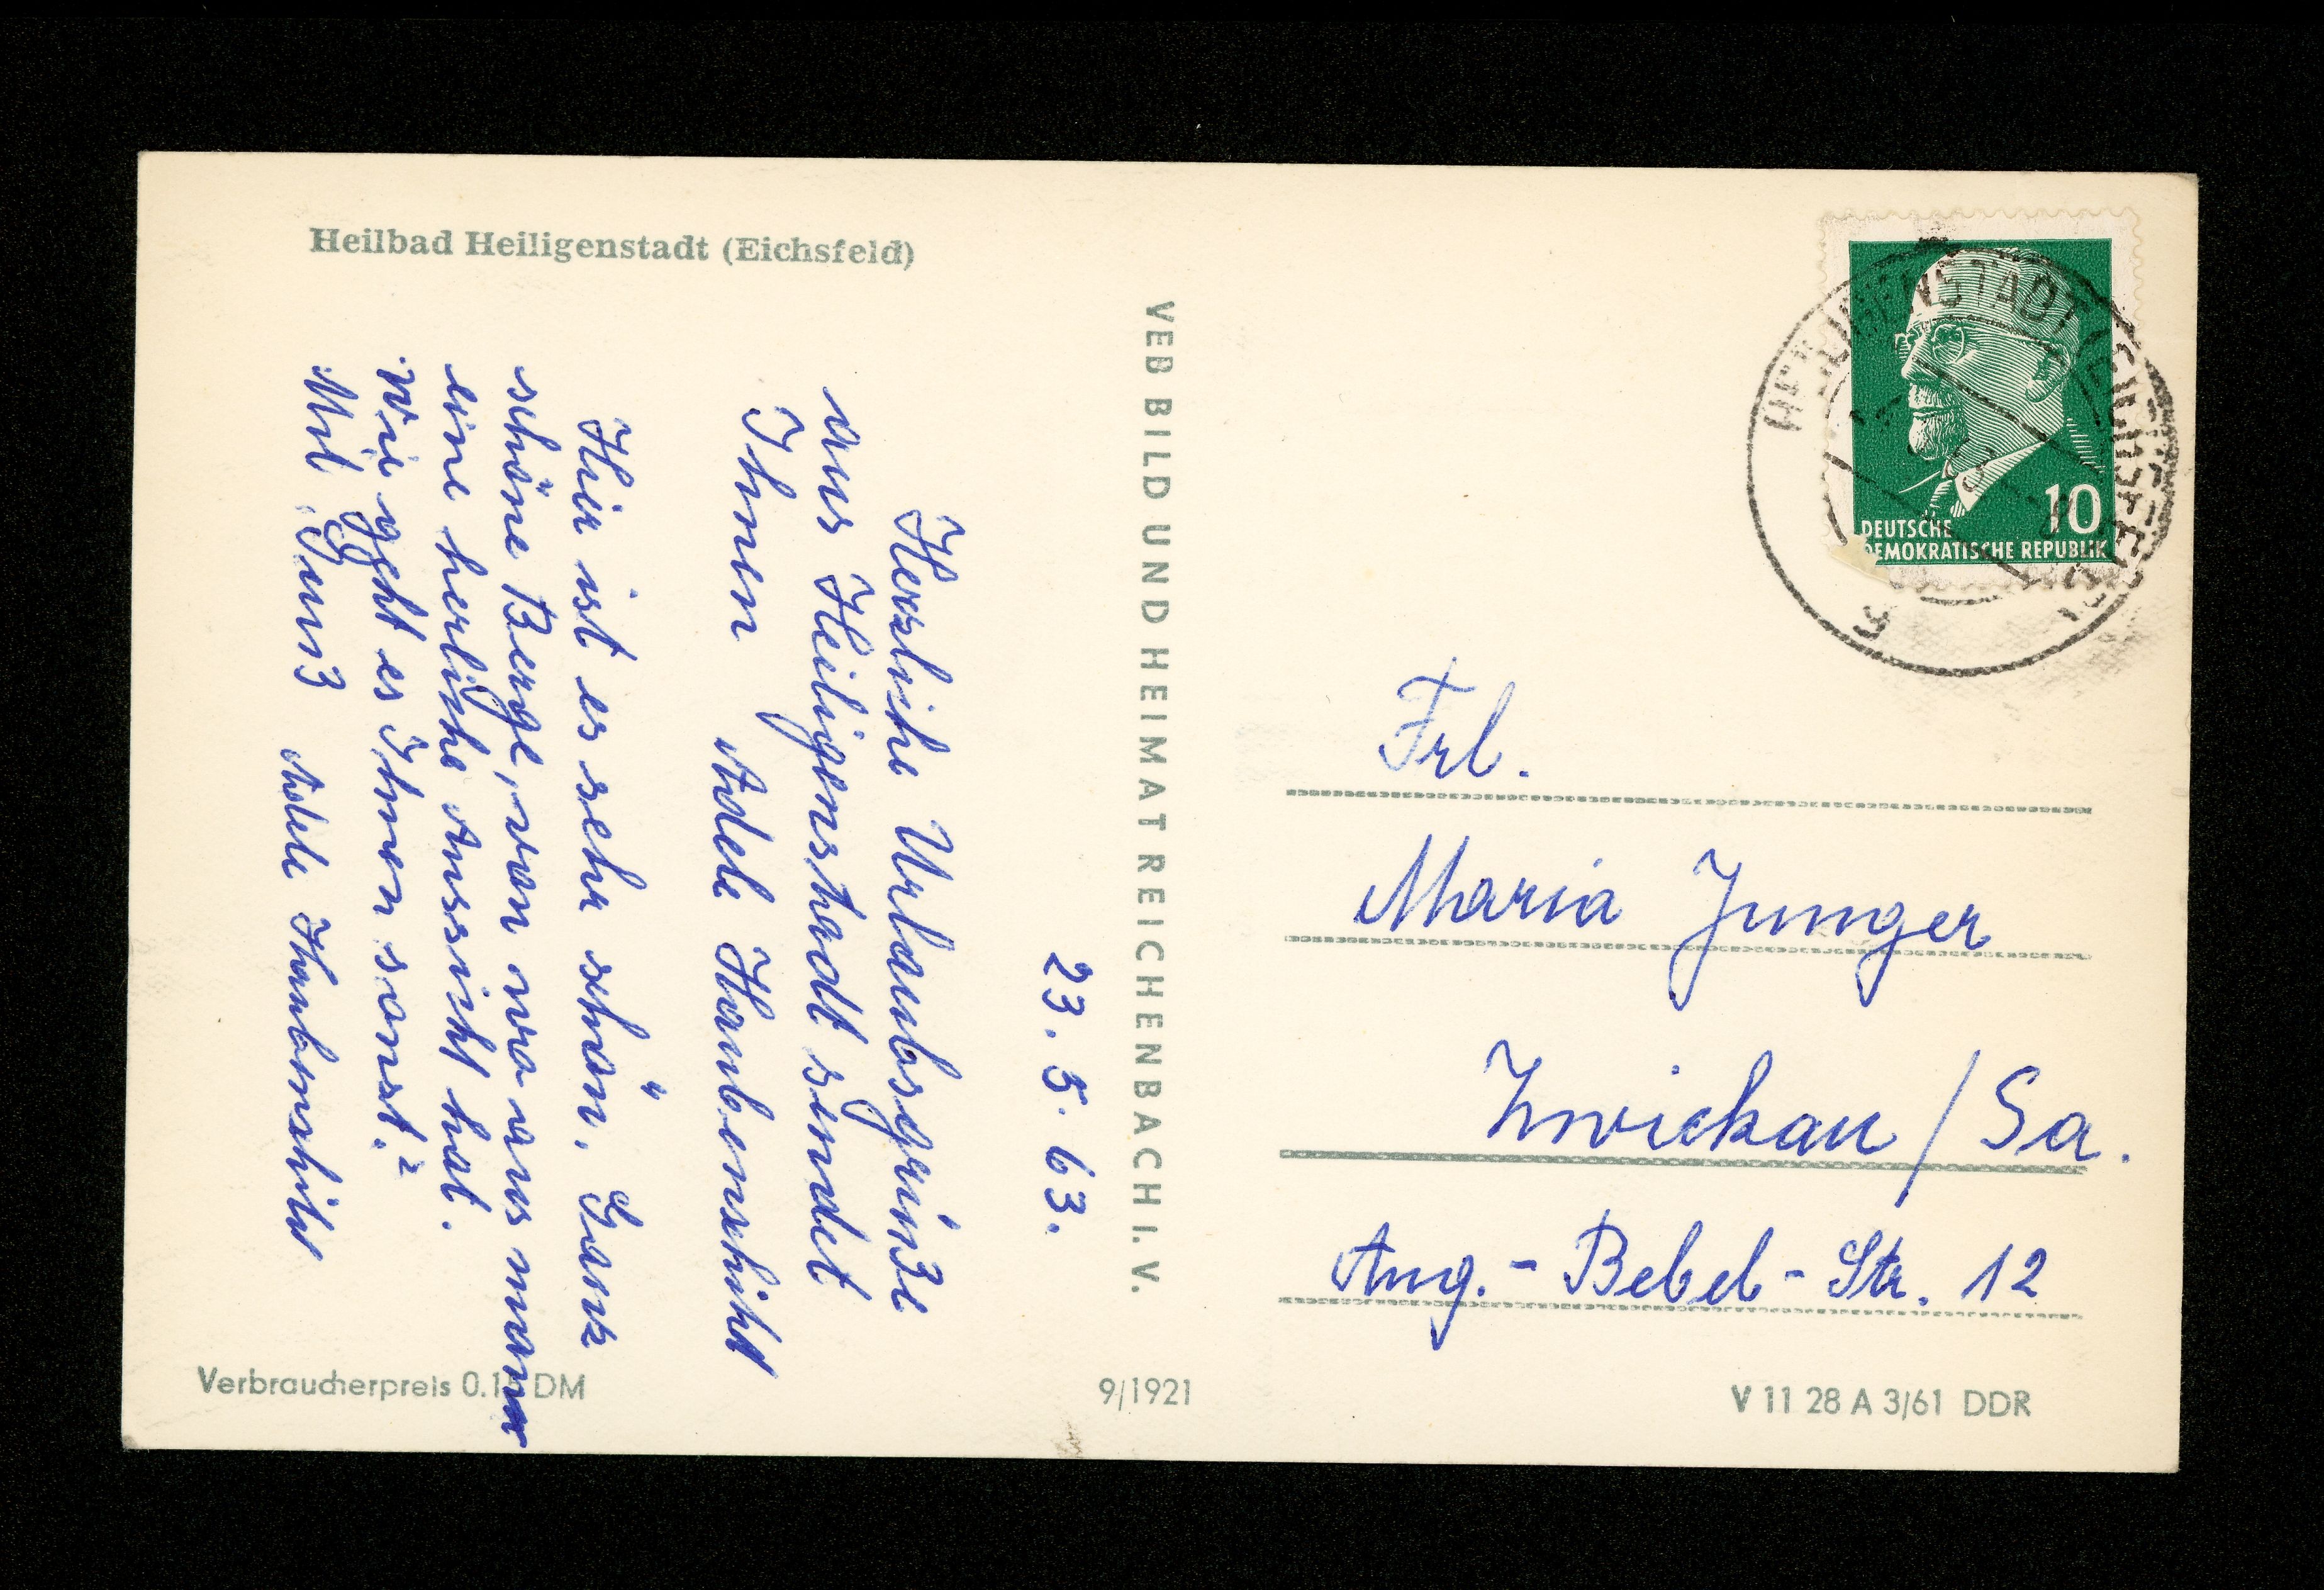 Heilbad Heiligenstadt (Eichsfeld)
23. 5. 63.
Herzliche Urlaubsgrüße
aus Heiligenstadt sendet
Ihnen Adele
Hier ist es sehr schön. Ganz
schöne Berge, von wo aus mann
eine herliche Aussicht hat.
Wie geht es Ihnen sonst?
Mit Gruß Adele
VEB BILD UND HEIMAT REICHENBACH I. V.
HEILIGENSTADT (EICHSFELD)
10
DEUTSCHE
DEMOKRATISCHE REPUBLIK
Frl.
Maria Junger
Zwickau / Sa.
Aug.-Bebel-Str. 12
Verbraucherpreis 0.15 DM
9/1921
V 11 28 A 3/61 DDR